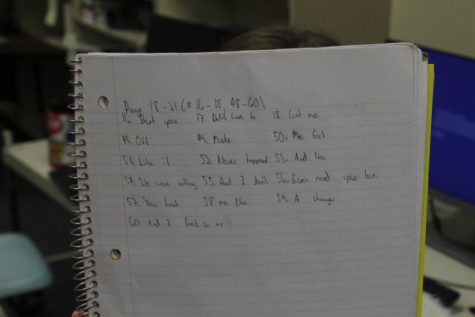 Page 18-21 (# 16-18, 48-60)
16. But you 17. Didn't have to 18. Cut me
48. Off 49. Make 50. Me feel
51. Like it 52. Never happened 53. And
54. We were nothing 55. And I don't 56. Even need your love
57. You treat 58. me like 59. A stranger
60. And I feel so